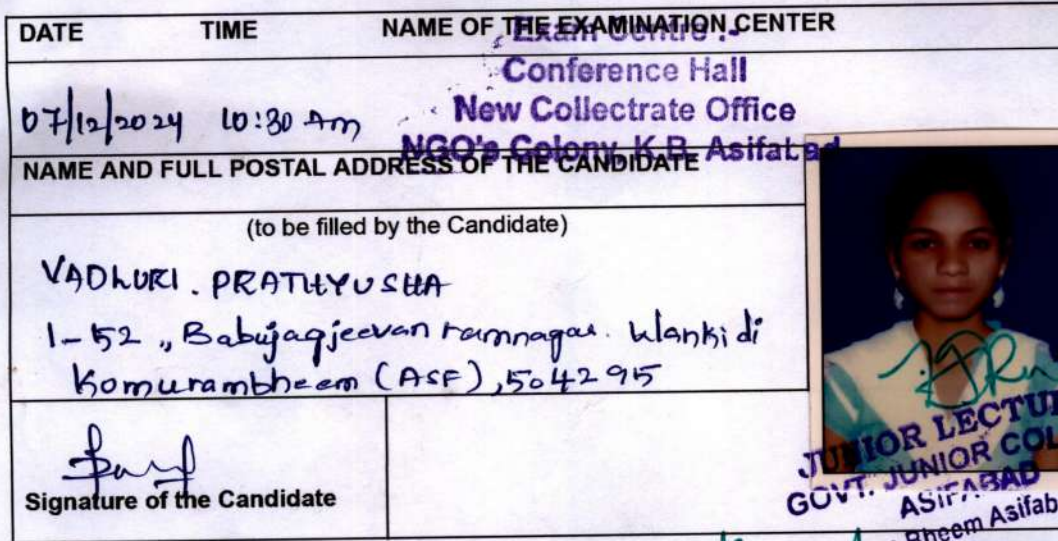 DATE TIME NAME OF THE EXAMINATION CENTER
Exam Centre :-
Conference Hall
07/12/2024 10:30 Am New Collectrate Office
NGO's Colony, K.B. Asifabad
NAME AND FULL POSTAL ADDRESS OF THE CANDIDATE
(to be filled by the Candidate)
VADLURI . PRATHYUSHA
1-52 ,, Babujagjeevan ramnagar. Wankidi
Komurambheem (ASF), 504295
Signature of the Candidate
JUNIOR LECTU
GOVT. JUNIOR COL
ASIFABAD
Bheem Asifab